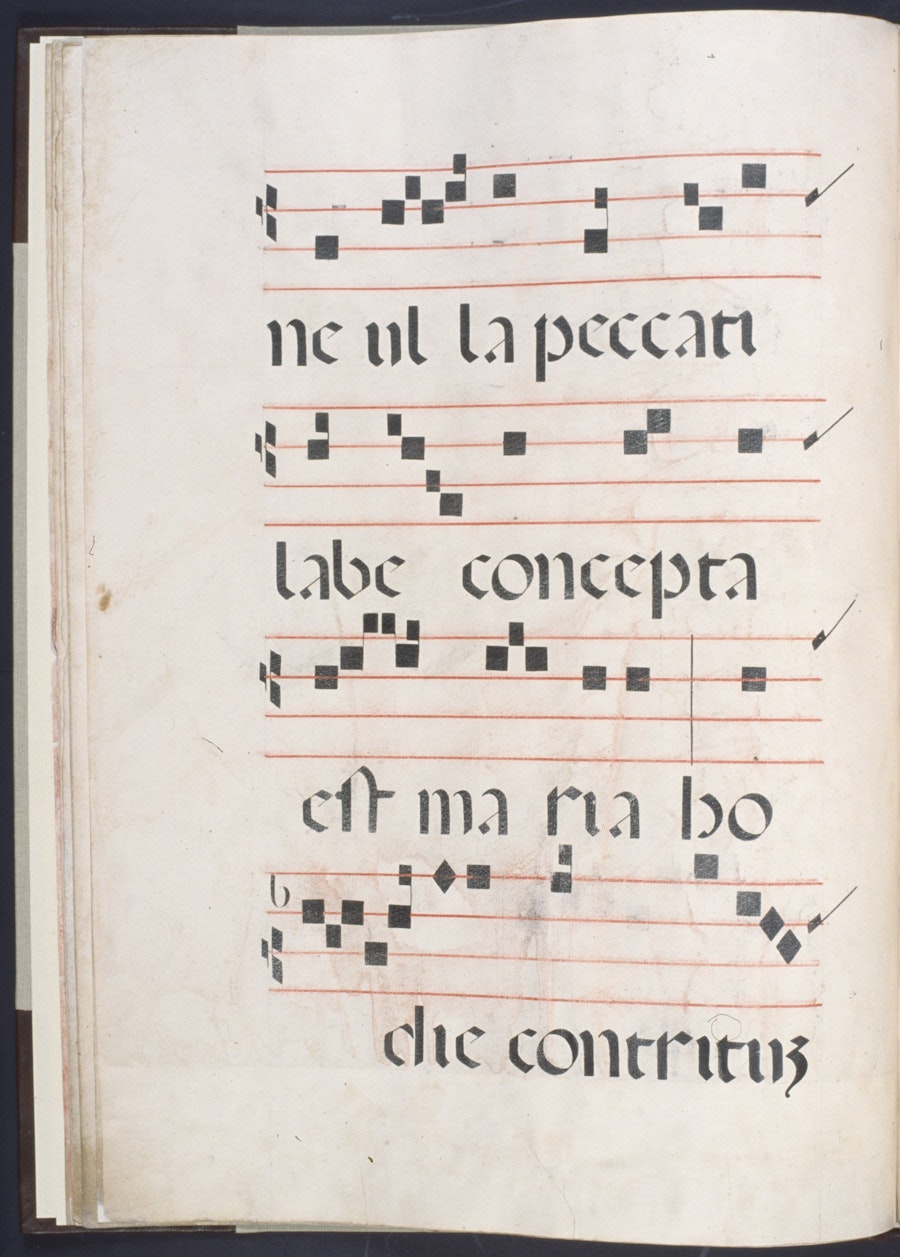 ne ul la peccati
labe concepta
est ma ria ho
die contrituʒ